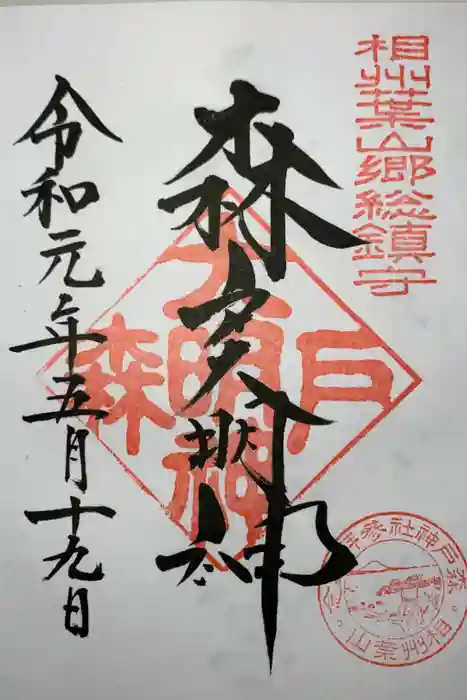 相州葉山郷総鎮守
森戸大明神
令和元年五月十九日
森戸大明神
相州葉山